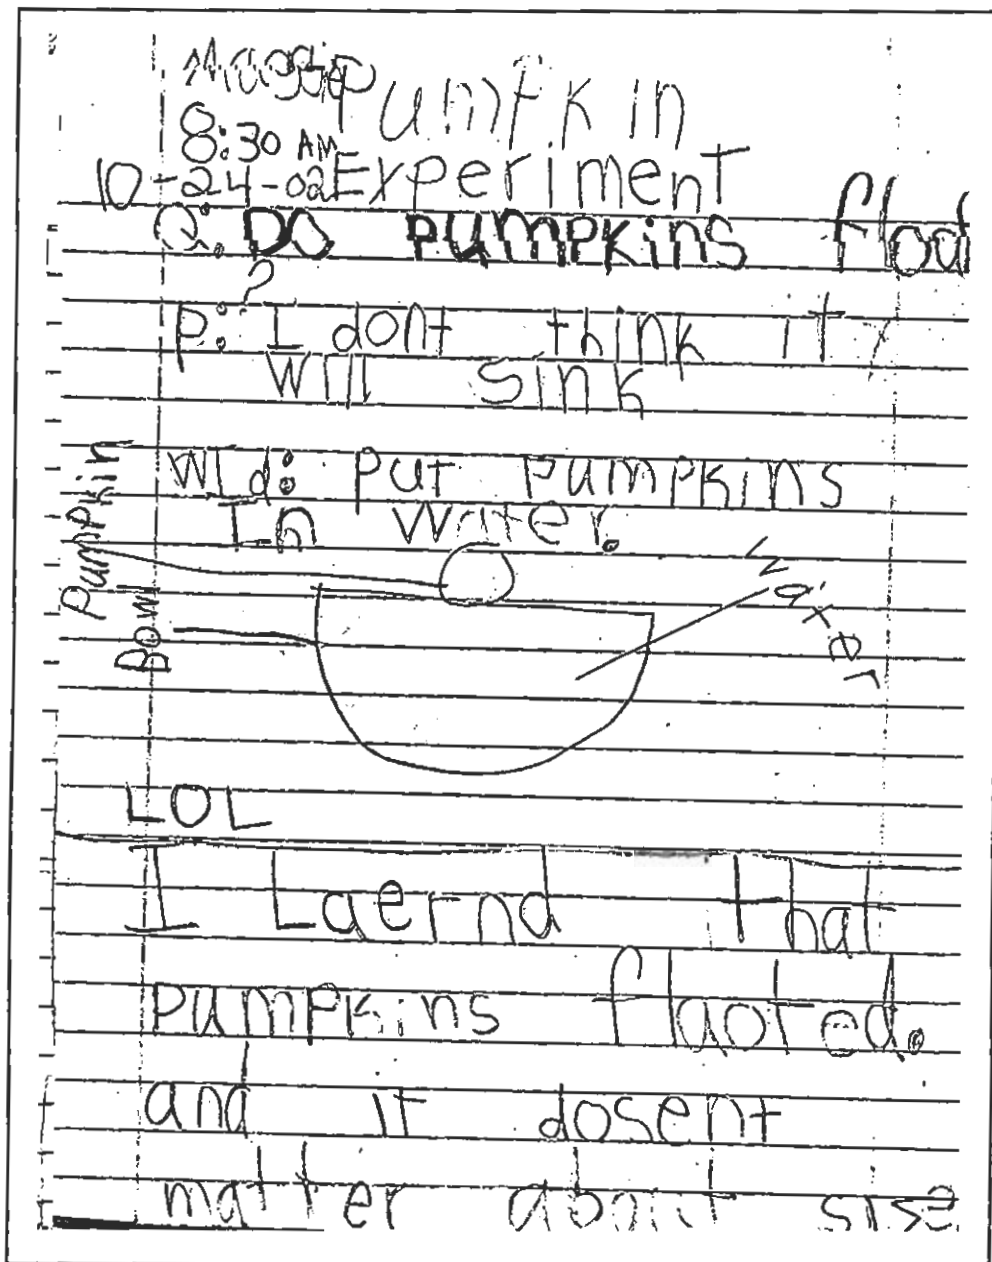 Maggie
Pumpkin
8:30 AM
Experiment
10-24-02
Q: DO PUMPKiNS float
?
P: I dont think it
will sink
WId: Put Pumpkins
In Water.
Pumpkin
Bowl
Water
LOL
I Laernd that
Pumpkins flaoted.
and it dosent
matter about sise